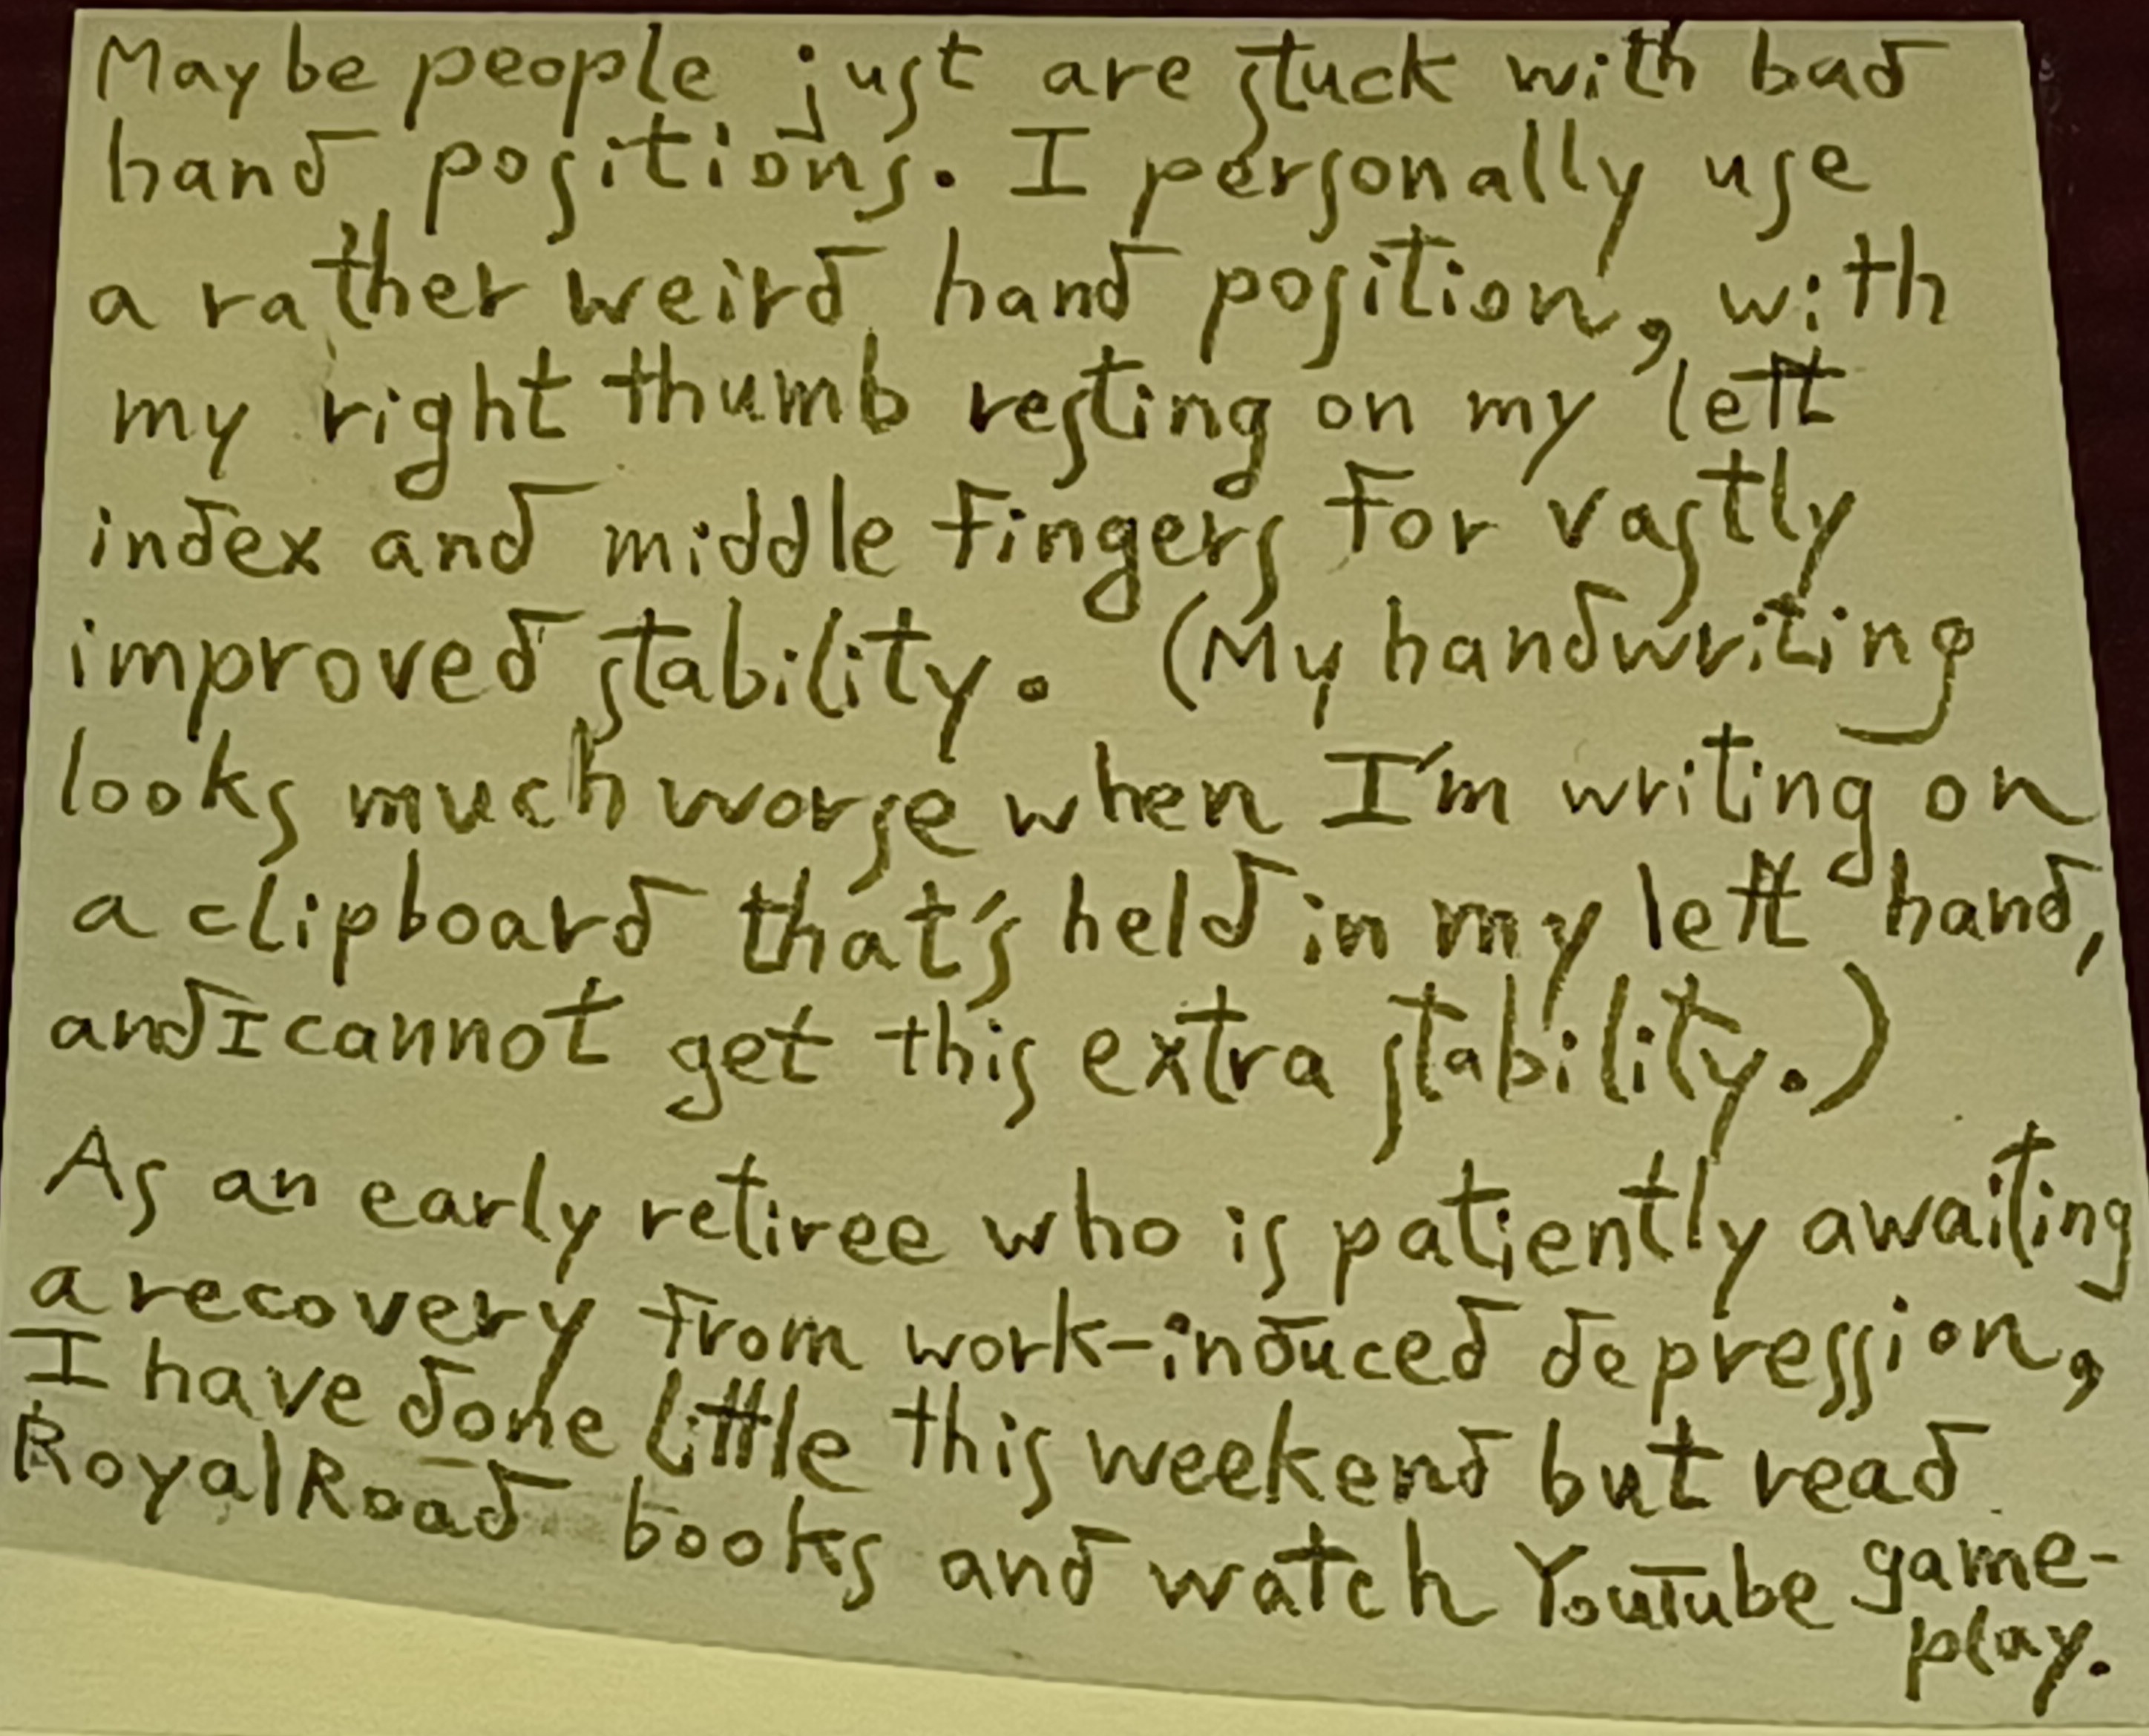 Maybe people just are stuck with bad
hand positions. I personally use
a rather weird hand position, with
my right thumb resting on my left
index and middle fingers for vastly
improved stability. (My handwriting
looks much worse when I'm writing on
a clipboard that's held in my left hand,
and I cannot get this extra stability.)
As an early retiree who is patiently awaiting
a recovery from work-induced depression,
I have done little this weekend but read
RoyalRoad books and watch YouTube game-
play.